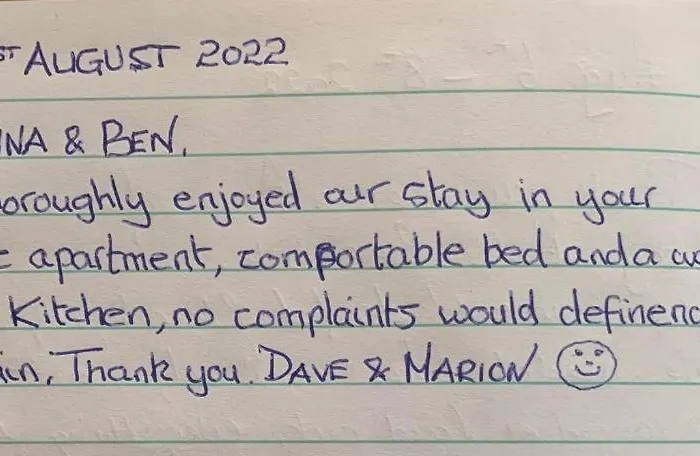 ST AUGUST 2022
NA & BEN,
oroughly enjoyed our stay in your
apartment, comfortable bed and a
Kitchen, no complaints would definenc
in, Thank you. DAVE & MARION